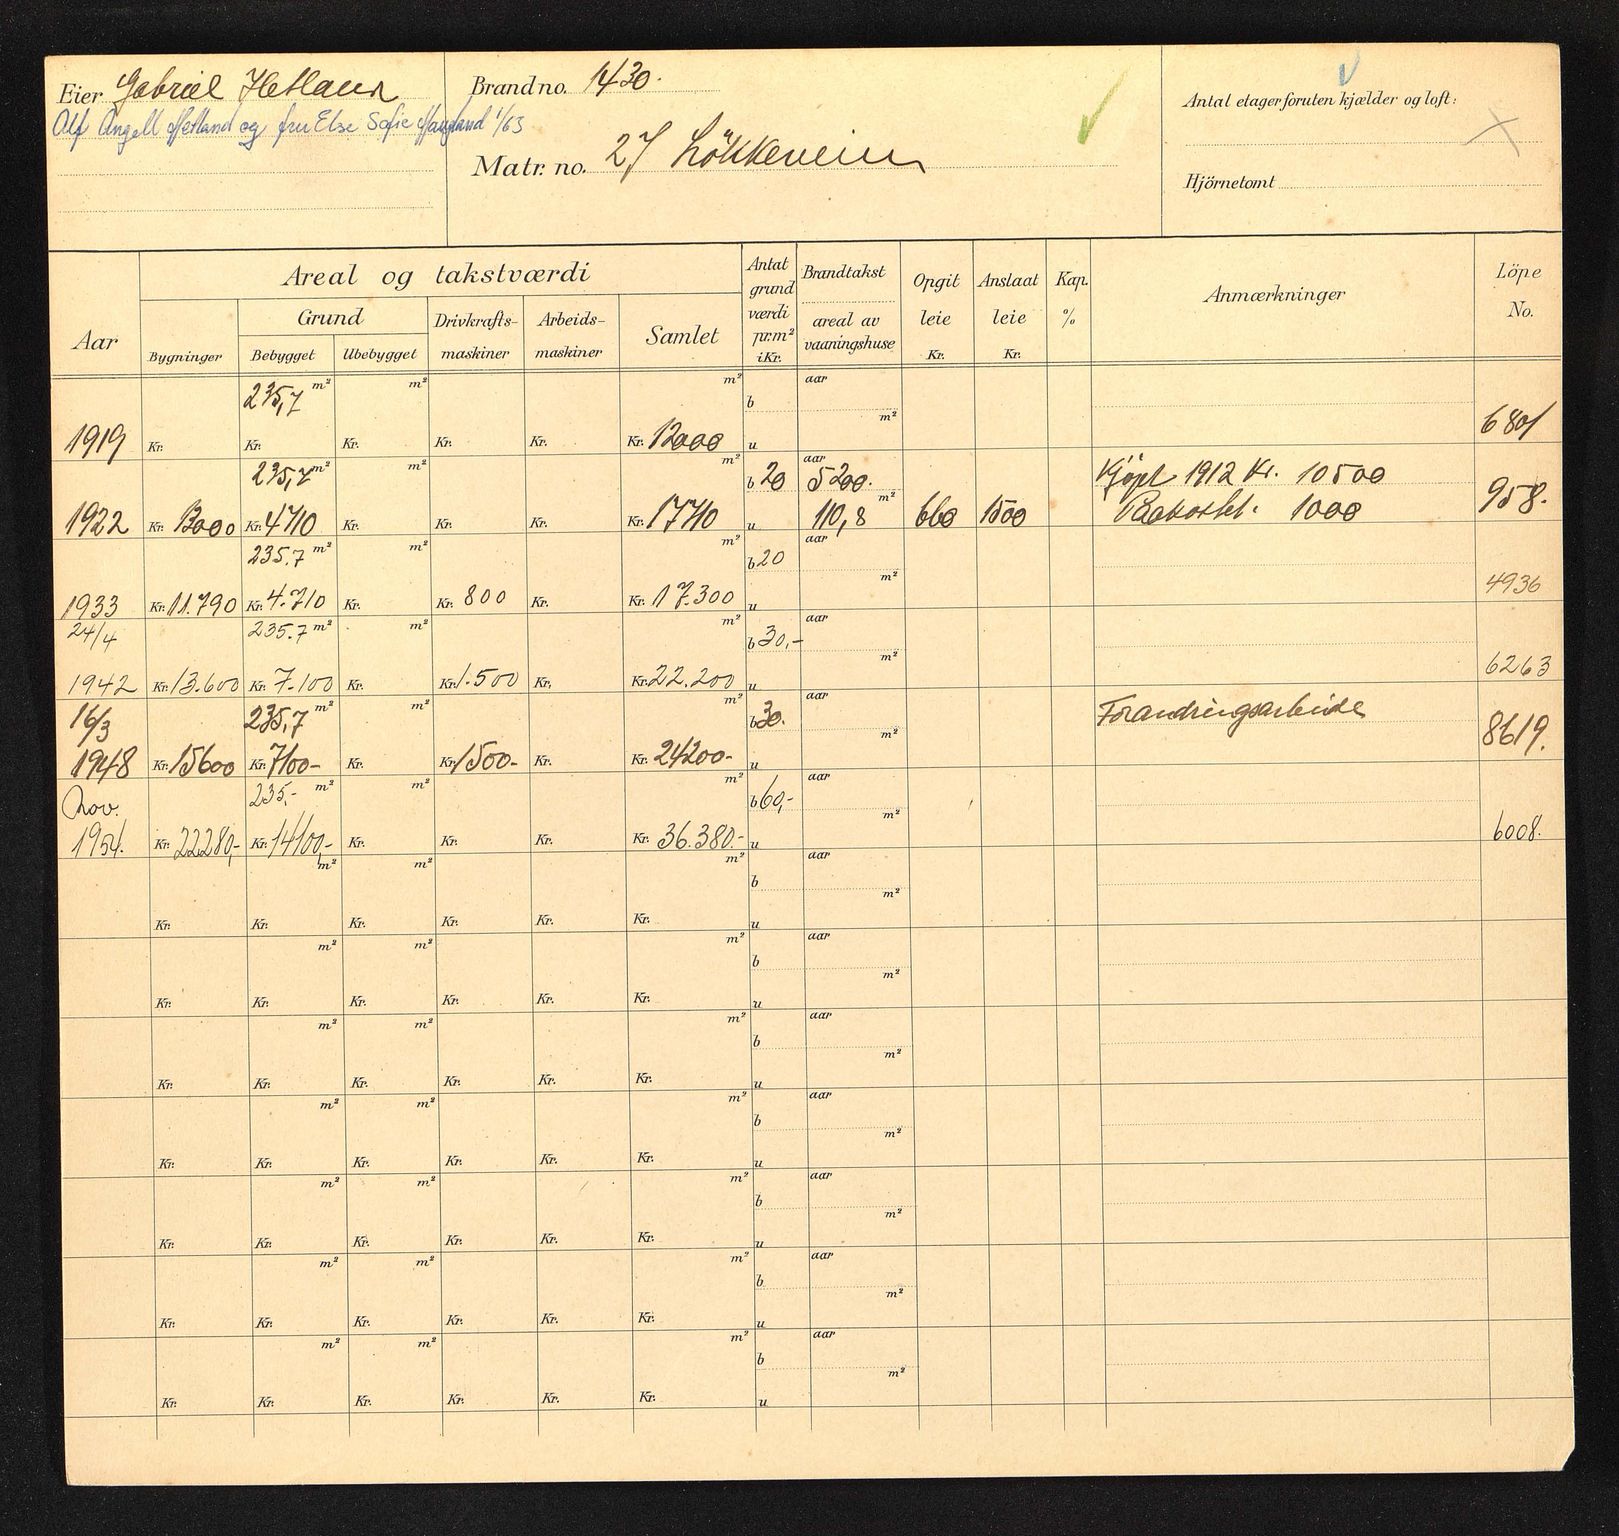 Eier Gabriel Hetland
Alf Angell Hetland og fru Else Sofie 1/63
Brandno. 1430.
Matr. no. 27 Lökkeveien
Antal etager foruten kjælder og loft:
Hjörnetomt
Aar
Areal og takstværdi
Bygninger
Grund
Bebygget Ubebygget
Drivkrafts-maskiner
Arbeids-maskiner
Samlet
Antat grund værdi pr.m² i Kr.
Brandtakst
areal av vaaningshuse
Opgit leie Kr.
Anslaat leie Kr.
Kap. %
Anmærkninger
Löpe No.
235,7 m² m² m² aar
b m²
1919 Kr. Kr. Kr. Kr. Kr. Kr. 12000 u 6801
235,7 m² m² m² b 20 aar 5200. Kjöpt 1912 Kr. 10500
1922 Kr. 13000 Kr. 4710 Kr. Kr. Kr. Kr. 17710 u m² 110,8 660 1500 Paakostet. 1000 958.
235.7 m² m² m² b 20 aar
m²
1933 Kr. 11.790 Kr. 4.710 Kr. Kr. 800 Kr. Kr. 17.300 u 4936
24/4 235.7 m² m² m² b 30,- aar
m²
1942 Kr. 13.600 Kr. 7.100 Kr. Kr. 1.500 Kr. Kr. 22.200 u 6263
16/3 235,7 m² m² m² b 30. aar Forandringsarbeide
m²
1948 Kr. 15600 Kr. 7100- Kr. Kr. 1500- Kr. Kr. 24200- u 8619.
Nov. 235,- m² m² m² b 60,- aar
m²
1954. Kr. 22280,- Kr. 14100,- Kr. Kr. Kr. Kr. 36.380.- u 6008.
m² m² m² aar
b m²
Kr. Kr. Kr. Kr. Kr. Kr. u
m² m² m² aar
b m²
Kr. Kr. Kr. Kr. Kr. Kr. u
m² m² m² aar
b m²
Kr. Kr. Kr. Kr. Kr. Kr. u
m² m² m² aar
b m²
Kr. Kr. Kr. Kr. Kr. Kr. u
m² m² m² aar
b m²
Kr. Kr. Kr. Kr. Kr. Kr. u
m² m² m² aar
b m²
Kr. Kr. Kr. Kr. Kr. Kr. u
m² m² m² aar
b m²
Kr. Kr. Kr. Kr. Kr. Kr. u